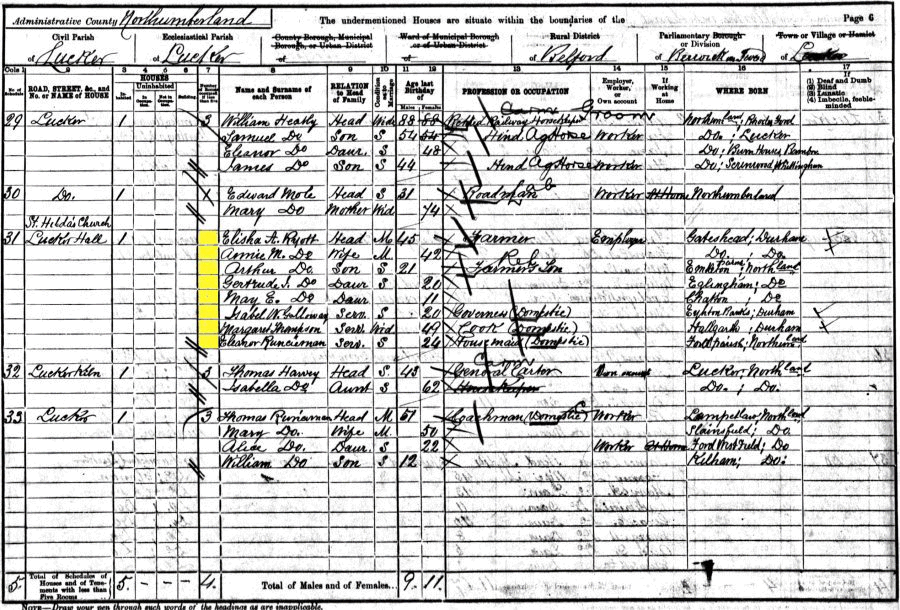 Administrative County Northumberland The undermentioned Houses are situate within the boundaries of the Page 6
Civil Parish Ecclesiastical Parish County Borough, Municipal Borough, or Urban District Ward of Municipal Borough or of Urban District Rural District Parliamentary Borough or Division Town or Village or Hamlet
of Lucker of Lucker of of of Belford of Berwick on Tweed of
Cols 1 2 3 4 5 6 7 8 9 10 11 12 13 14 15 16 17
No. of Schedule ROAD, STREET, &c., and No. or NAME of HOUSE HOUSES In-habited Uninhabited In Occupation Not in Occupation Building Name and Surname of each Person RELATION to Head of Family Condition as to Marriage Age last Birthday of Males Females PROFESSION OR OCCUPATION Employer, Worker, or Own account If Working at Home WHERE BORN (1) Deaf and Dumb (2) Blind (3) Lunatic (4) Imbecile, feeble-minded
29 Lucker 1 3 William Heatly Head Wid 88 Retired Railway Groom
Samuel Do Son S 54 Hind Ag Horse Worker Do; Lucker
Eleanor Do Daur S 48 Do;
James Do Son S 44 Hind Ag Horse Worker Do;
30 Do. 1 Edward Mole Head S 31 Roadman Worker Northumberland
Mary Do Mother Wid 74
St. Hilda's Church
31 Lucker Hall 1 Elisha A. Ryott Head M 45 Farmer Employer Gateshead; Durham
Annie M. Do Wife M 42 Do; Do.
Arthur Do. Son S 21 Farmer's Son Embleton; Northland
Gertrude J. Do Daur S 20 Eglingham; Do
May E. Do Daur 11 Chatton; Do
Isabel N. Galloway Serv. S 20 Governess (Domestic) Durham
Margaret Thompson Serv. Wid 49 Cook (Domestic) Hallgarth; Durham
Eleanor Runcieman Serv. S 24 Housemaid (Domestic) Northumland
32 Lucker Kiln 1 3 Thomas Harvy Head S 43 General Carter Own account Lucker; Northland
Isabella Do Aunt S 62 Housekeeper Do.; Do.
33 Lucker 1 3 Thomas Runcieman Head M 51 Coachman (Domestic) Worker Northland
Mary Do. Wife M 50 Plainsfield; Do.
Alice Do. Daur. S 22 Worker At Home Ford Westfield; Do
William Do Son S 12 Kilham; Do:
5 Total of Schedules of Houses and of Tenements with less than Five Rooms 5 - - - 4 Total of Males and of Females... 9 11
NOTE—Draw your pen through such words of the headings as are inapplicable.